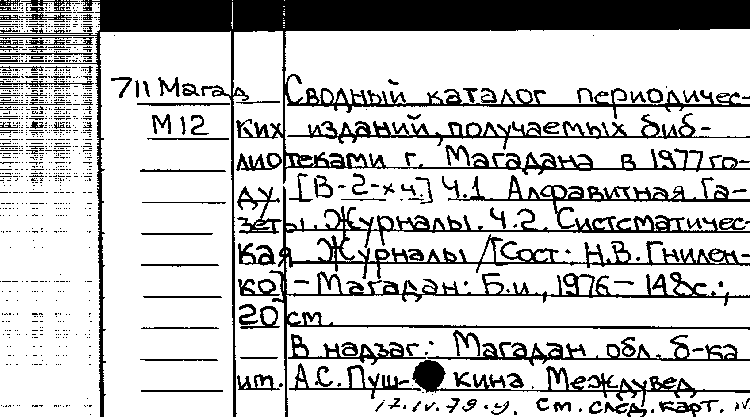 711 Магад Сводный каталог периодичес-
М12 ких изданий, получаемых биб-
лиотеками г. Магадана в 1977 го-
ду. [В-2-х ч.] Ч.1. Алфавитная. Га-
зеты. Журналы. Ч.2. Систематичес-
кая. Журналы /[Сост.: Н.В. Гнилен-
ко] - Магадан: Б.и., 1976 - 148с.;
20 см.
В надзаг.: Магадан. обл. б-ка
им. А.С. Пуш- кина. Междувед
см. след. карт.